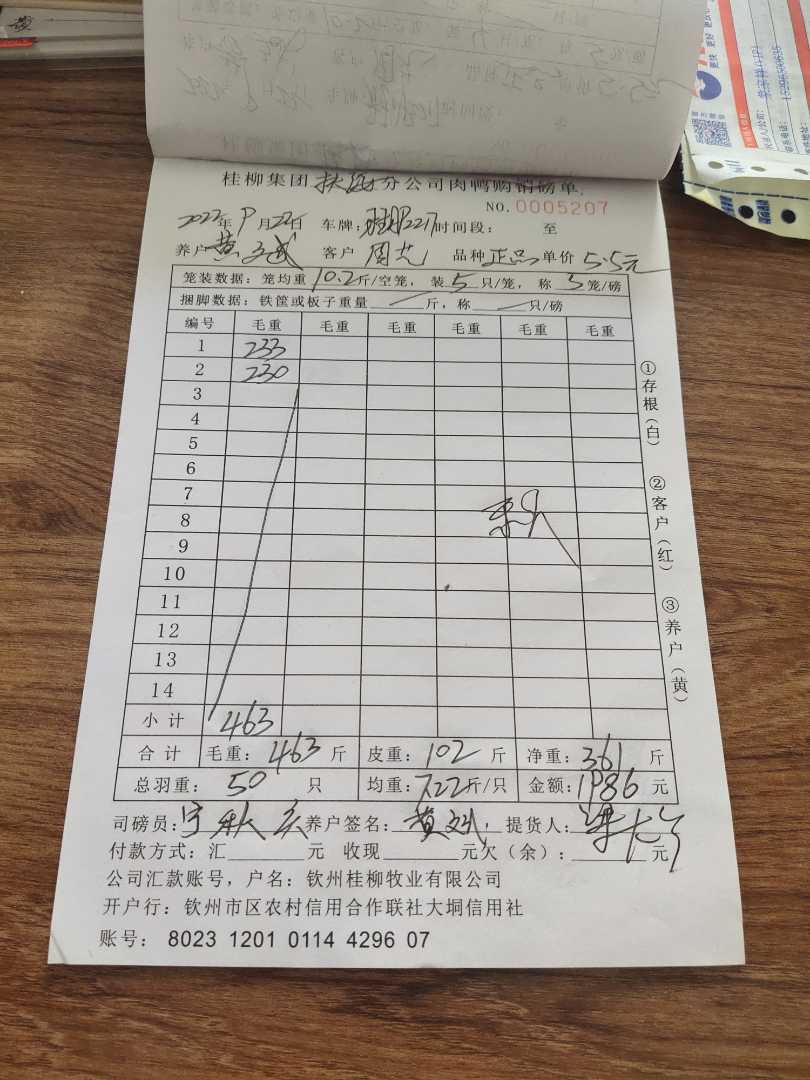 桂柳集团扶绥分公司肉鸭购销磅单
NO.0005207
2022年9月22日 车牌: 时间段: 至
养户 黄文斌 客户 周艺 品种 正品 单价 5.5元
笼装数据: 笼均重 10.2斤/空笼, 装 5 只/笼, 称 5 笼/磅
捆脚数据: 铁筐或板子重量 斤, 称 只/磅
编号 毛重 毛重 毛重 毛重 毛重 毛重
1 233
2 230
3
4
5
6
7
8
9
10
11
12
13
14
小计 463
合计 毛重: 463 斤 皮重: 102 斤 净重: 361 斤
总羽重: 50 只 均重: 7.22斤/只 金额: 1986 元
司磅员: 养户签名: 黄文斌, 提货人:
付款方式: 汇 元 收现 元欠(余): 元
公司汇款账号, 户名: 钦州桂柳牧业有限公司
开户行: 钦州市区农村信用合作联社大垌信用社
账号: 8023 1201 0114 4296 07
①存根(白)
②客户(红)
③养户(黄)